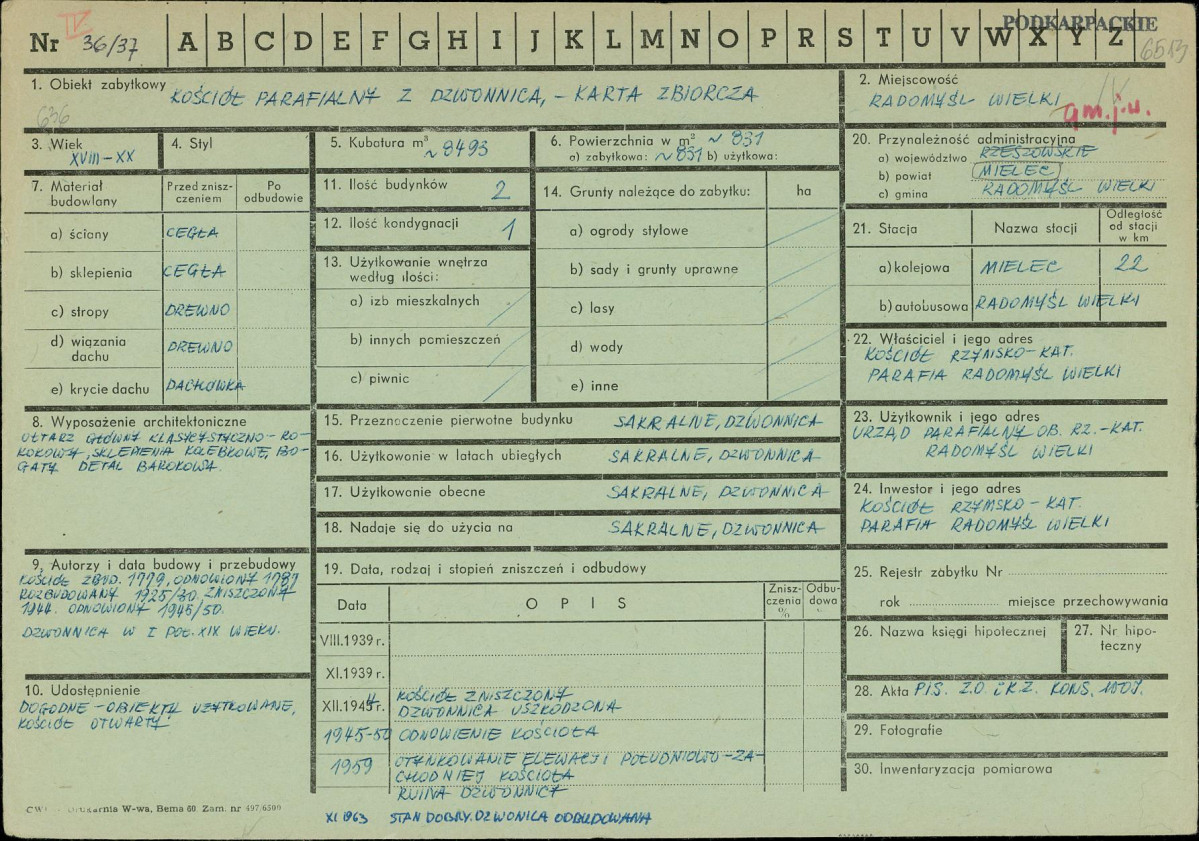 IV
Nr 36/37 A B C D E F G H I J K L M N O P R S T U V W X Y Z
PODKARPACKIE
6513
1. Obiekt zabytkowy KOŚCIÓŁ PARAFIALNY Z DZWONNICĄ, - KARTA ZBIORCZA
636
2. Miejscowość
RADOMYŚL WIELKI
gm.j.w.
3. Wiek
XVIII-XX
4. Styl
5. Kubatura m³
~ 8493
6. Powierzchnia w m² ~ 831
a) zabytkowa: ~ 831 b) użytkowa:
20. Przynależność administracyjna
a) województwo RZESZOWSKIE
b) powiat MIELEC
c) gmina RADOMYŚL WIELKI
7. Materiał budowlany
Przed zniszczeniem
Po odbudowie
a) ściany CEGŁA
b) sklepienia CEGŁA
c) stropy DREWNO
d) wiązania dachu DREWNO
e) krycie dachu DACHÓWKA
11. Ilość budynków 2
12. Ilość kondygnacji 1
13. Użytkowanie wnętrza
według ilości:
a) izb mieszkalnych
b) innych pomieszczeń
c) piwnic
14. Grunty należące do zabytku: ha
a) ogrody stylowe
b) sady i grunty uprawne
c) lasy
d) wody
e) inne
21. Stacja
Nazwa stacji
Odległość od stacji w km
a) kolejowa MIELEC 22
b) autobusowa RADOMYŚL WIELKI
22. Właściciel i jego adres
KOŚCIÓŁ RZYMSKO-KAT.
PARAFIA RADOMYŚL WIELKI
8. Wyposażenie architektoniczne
OŁTARZ GŁÓWNY KLASYCYSTYCZNO-RO-
KOKOWY, SKLEPIENIA KOLEBKOWE, BO-
GATY DETAL BAROKOWA.
15. Przeznaczenie pierwotne budynku SAKRALNE, DZWONNICA
16. Użytkowanie w latach ubiegłych SAKRALNE, DZWONNICA
17. Użytkowanie obecne SAKRALNE, DZWONNICA
18. Nadaje się do użycia na SAKRALNE, DZWONNICA
23. Użytkownik i jego adres
URZĄD PARAFIALNY OB. RZ.-KAT.
RADOMYŚL WIELKI
24. Inwestor i jego adres
KOŚCIÓŁ RZYMSKO-KAT.
PARAFIA RADOMYŚL WIELKI
9. Autorzy i data budowy i przebudowy
KOŚCIÓŁ ZBUD. 1779, ODNOWIONY 1787
ROZBUDOWANY 1925/30. ZNISZCZONY
1944. ODNOWIONY 1945/50.
DZWONNICA W I POŁ. XIX WIEKU.
10. Udostępnienie
DOGODNE - OBIEKTY UŻYTKOWANE,
KOŚCIÓŁ OTWARTY.
19. Data, rodzaj i stopień zniszczeń i odbudowy
Data
OPIS
Zniszczenia %
Odbudowa %
VIII.1939 r.
XI.1939 r.
XII.1944 r. KOŚCIÓŁ ZNISZCZONY
DZWONNICA USZKODZONA
1945-50 ODNOWIENIE KOŚCIOŁA
1959 OTYNKOWANIE ELEWACJI POŁUDNIOWO-ZA-
CHODNIEJ KOŚCIOŁA
RUINA DZWONNICY
XI 1963 STAN DOBRY. DZWONICA ODBUDOWANA
25. Rejestr zabytku Nr
rok miejsce przechowywania
26. Nazwa księgi hipotecznej
27. Nr hipoteczny
28. Akta PIS. Z.O. i K.Z. KONS. WOJ.
29. Fotografie
30. Inwentaryzacja pomiarowa
Drukarnia W-wa, Bema 60. Zam. nr 497/6500